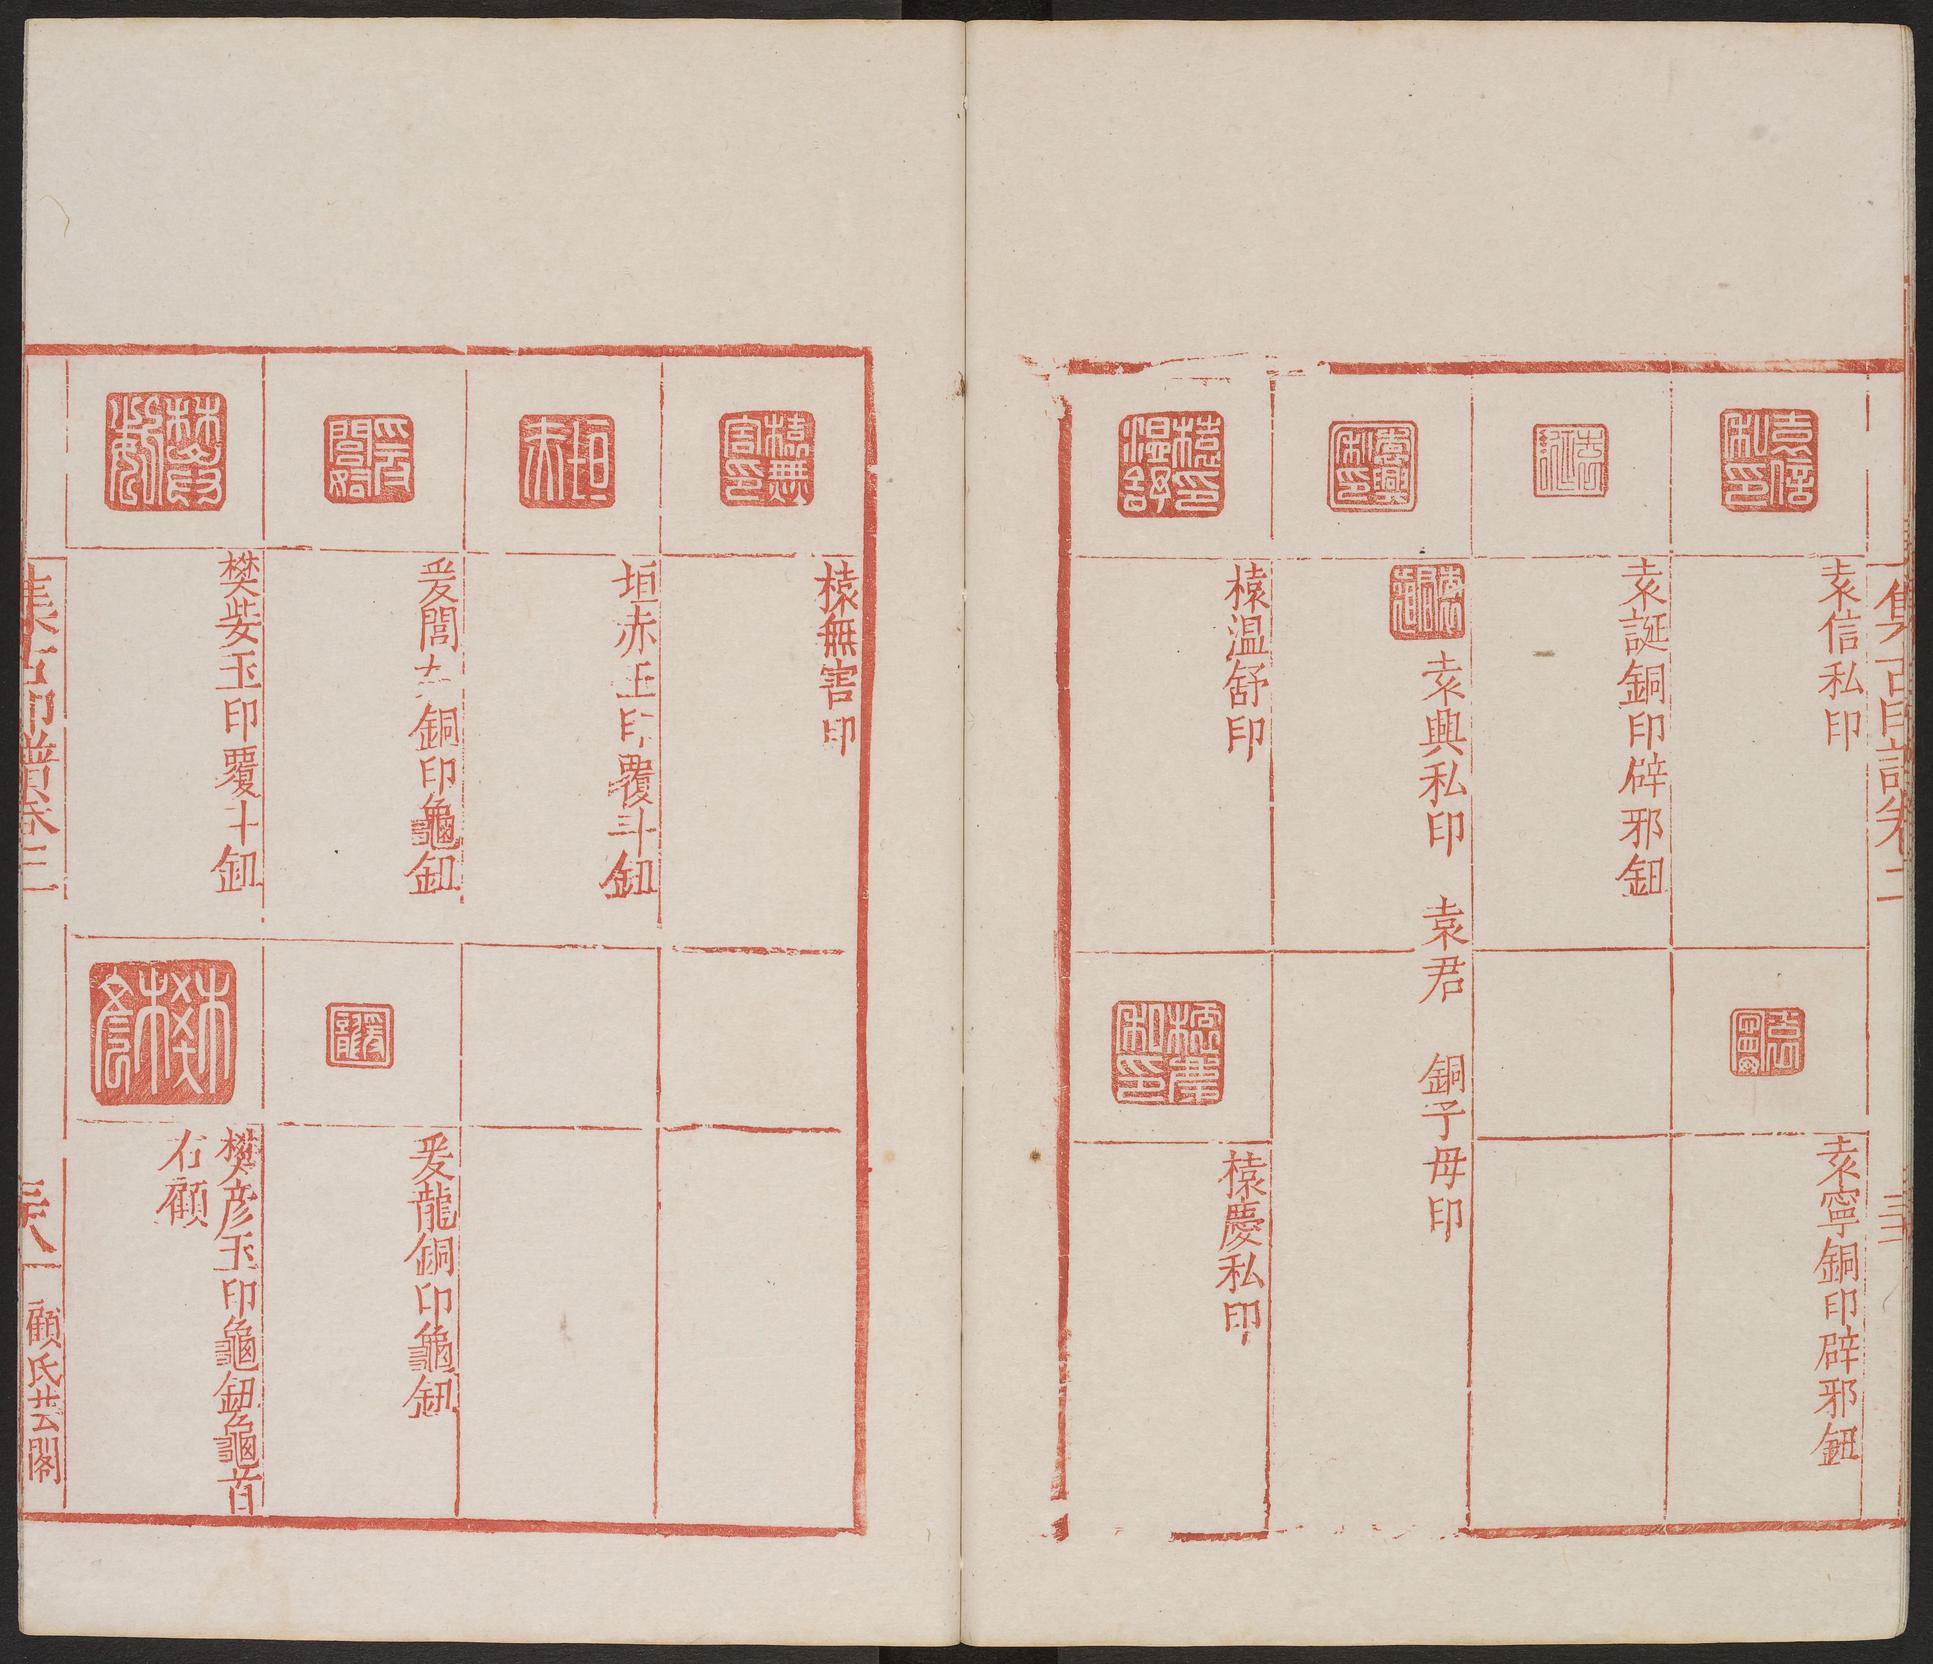 集古印譜卷二
袁信私印
袁寧銅印辟邪鈕
袁誕銅印辟邪鈕
袁興私印 袁君 銅子母印
榬溫舒印
榬慶私印
榬無害印
垣赤玉印覆斗鈕
爰閭 銅印龜鈕
爰龍銅印龜鈕
樊姿玉印覆斗鈕
樊彦玉印龜鈕龜首
右顧
集古印譜卷二
顧氏芸閣